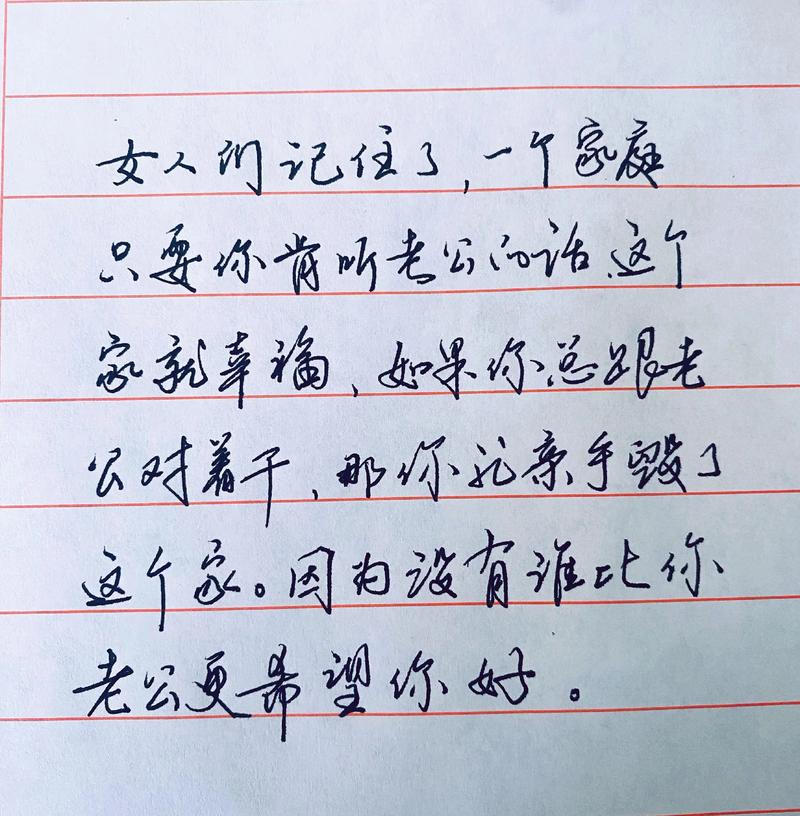 女人们记住了,一个家庭
只要你肯听老公的话、这个
家就幸福、如果你总跟老
公对着干、那你就亲手毁了
这个家。因为没有谁比你
老公更希望你好。